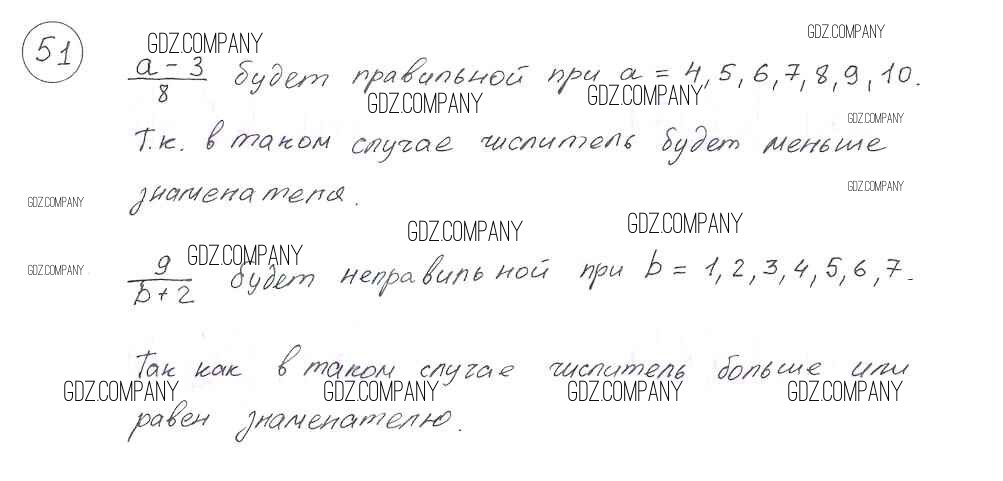 51
GDZ.COMPANY
GDZ.COMPANY
a - 3 / 8 будет правильной при a = 4, 5, 6, 7, 8, 9, 10.
GDZ.COMPANY GDZ.COMPANY
GDZ.COMPANY
Т.к. в таком случае числитель будет меньше
GDZ.COMPANY
знаменателя.
GDZ.COMPANY
GDZ.COMPANY GDZ.COMPANY
GDZ.COMPANY
9 / b + 2 будет неправильной при b = 1, 2, 3, 4, 5, 6, 7.
GDZ.COMPANY
Так как в таком случае числитель больше или
GDZ.COMPANY GDZ.COMPANY GDZ.COMPANY GDZ.COMPANY
равен знаменателю.